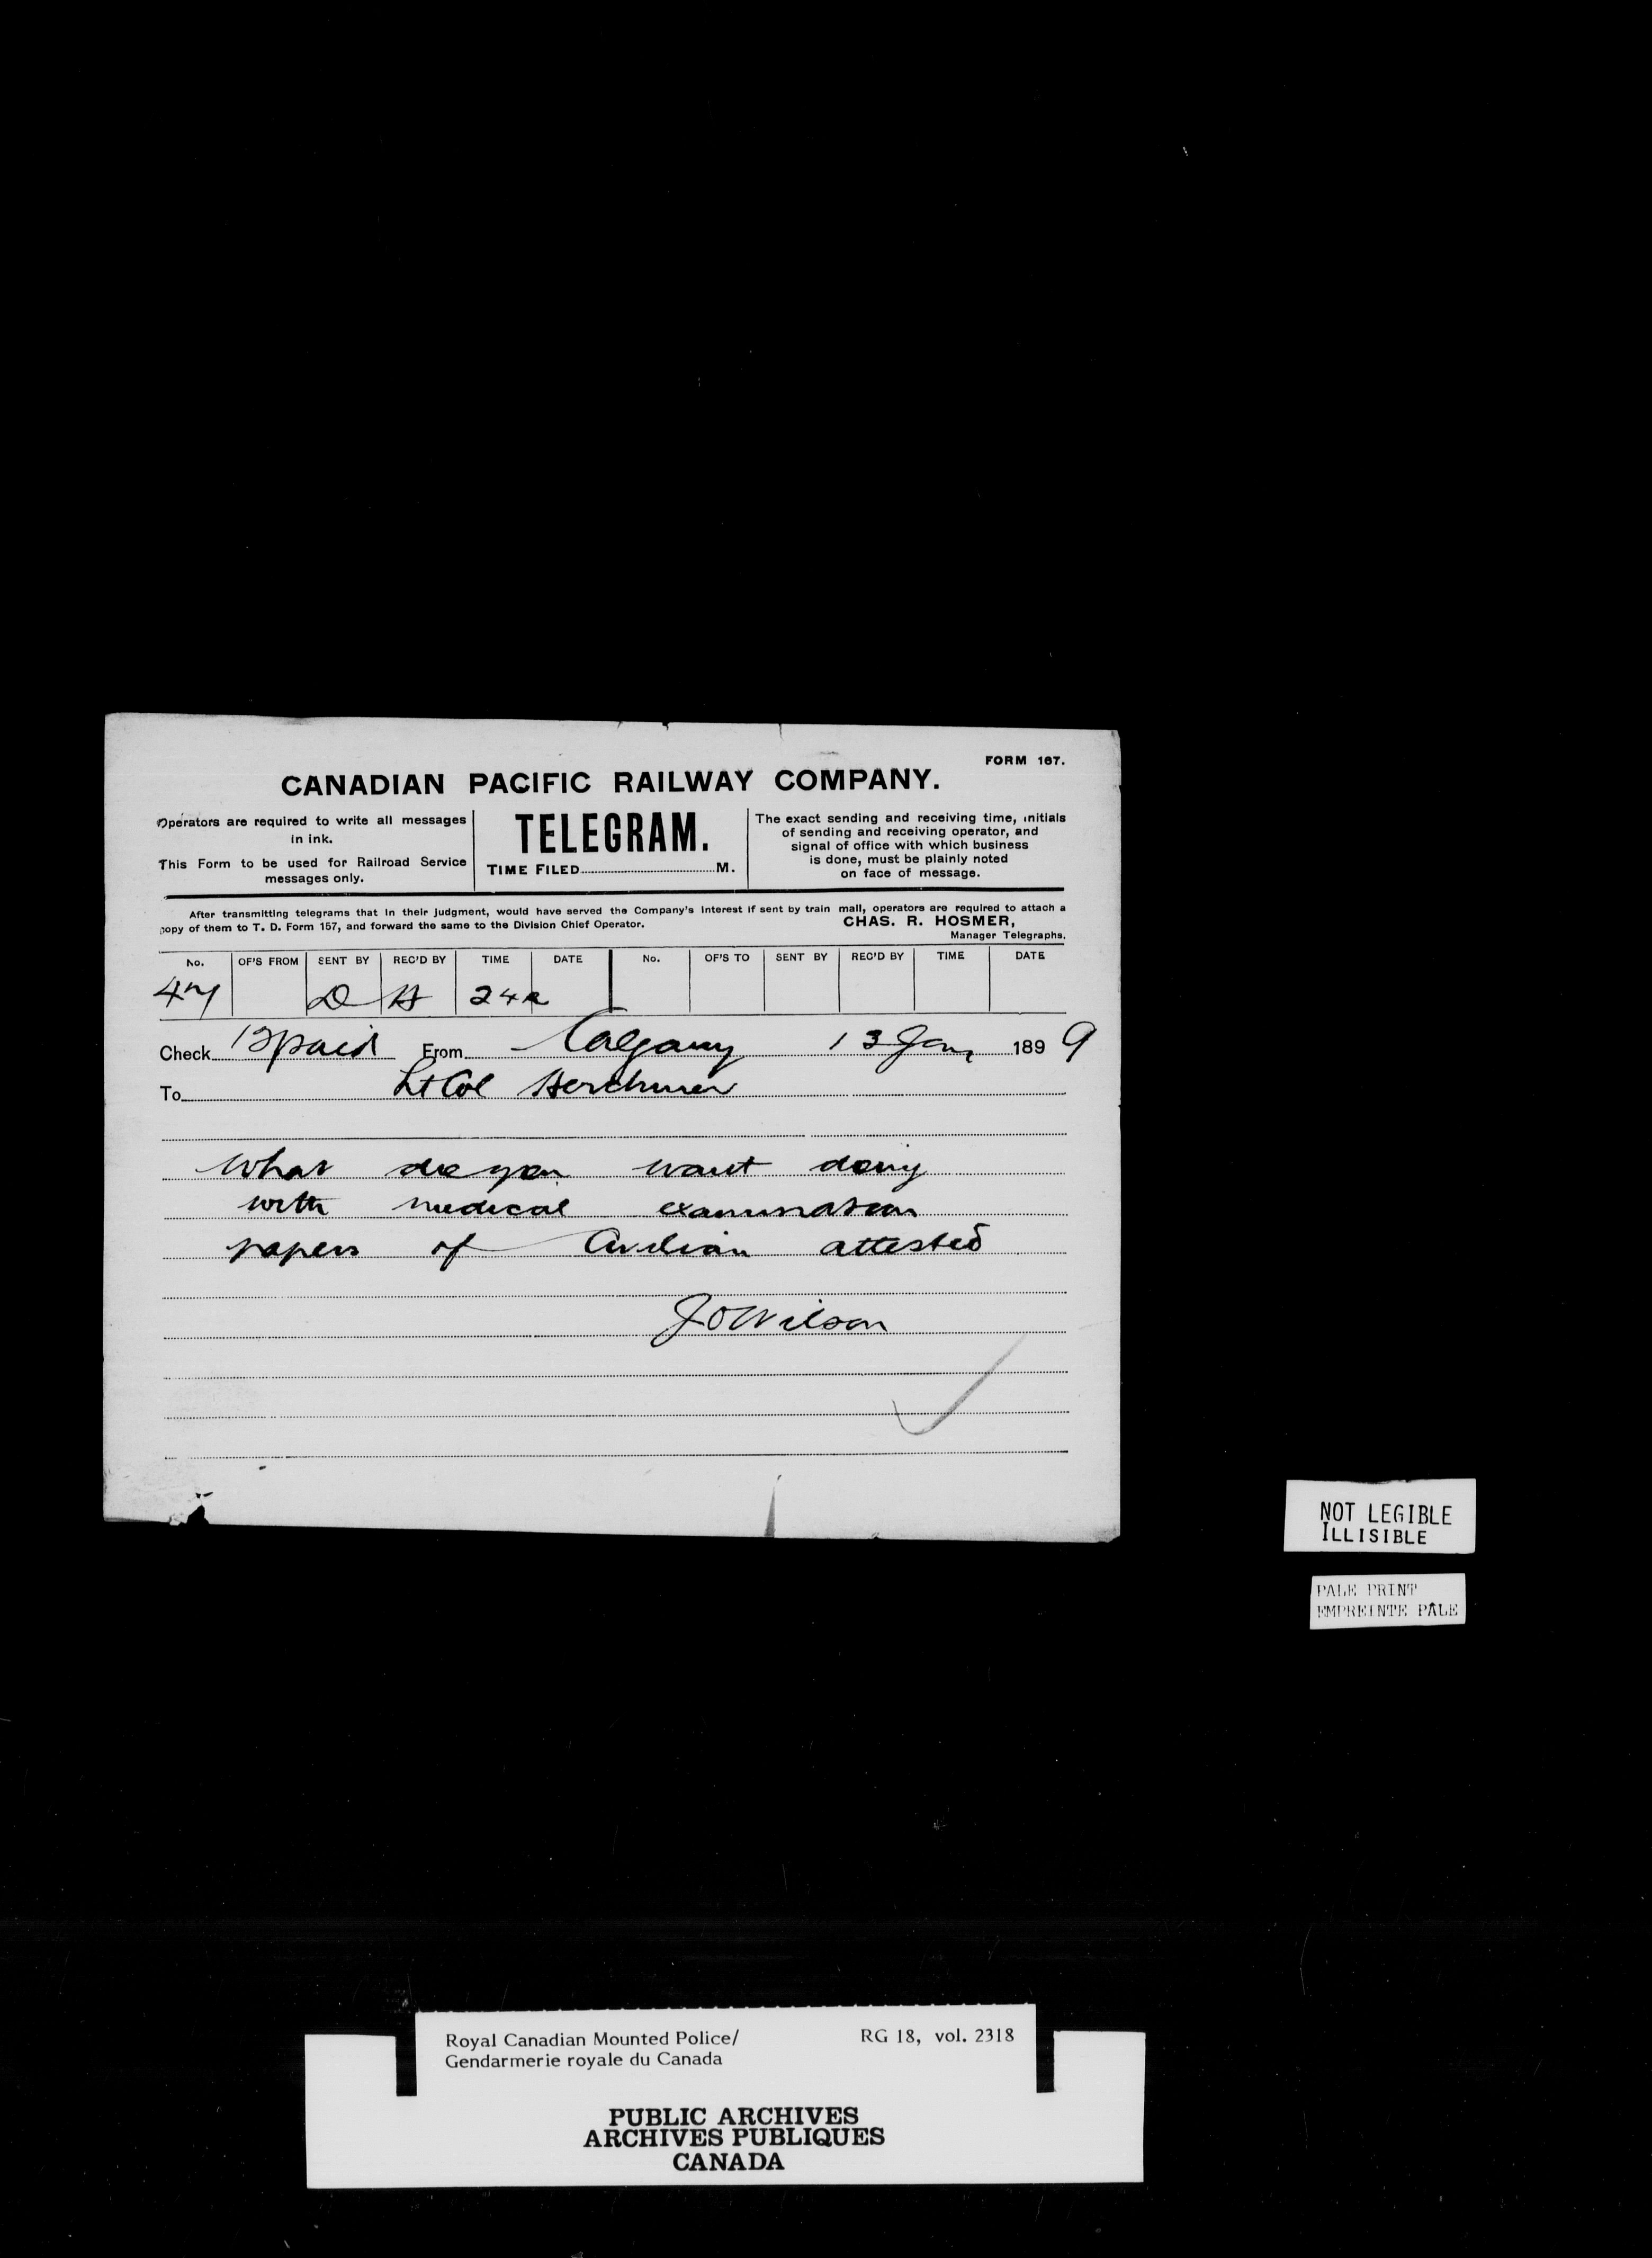 FORM 167.
CANADIAN PACIFIC RAILWAY COMPANY.
Operators are required to write all messages
in ink.
This Form to be used for Railroad Service
messages only.
TELEGRAM.
TIME FILED M.
The exact sending and receiving time, initials
of sending and receiving operator, and
signal of office with which business
is done, must be plainly noted
on face of message.
After transmitting telegrams that in their judgment, would have served the Company's interest if sent by train mail, operators are required to attach a
copy of them to T. D. Form 157, and forward the same to the Division Chief Operator. CHAS. R. HOSMER,
Manager Telegraphs.
No. OF'S FROM SENT BY REC'D BY TIME DATE No. OF'S TO SENT BY REC'D BY TIME DATE
D H
Check paid From Calgary 13 Jany 1899
To Lt Col Herchmer
What do you want doing
with medical examination
papers of attested
J O Wilson
NOT LEGIBLE
ILLISIBLE
PALE PRINT
EMPREINTE PÂLE
Royal Canadian Mounted Police/ RG 18, vol. 2318
Gendarmerie royale du Canada
PUBLIC ARCHIVES
ARCHIVES PUBLIQUES
CANADA